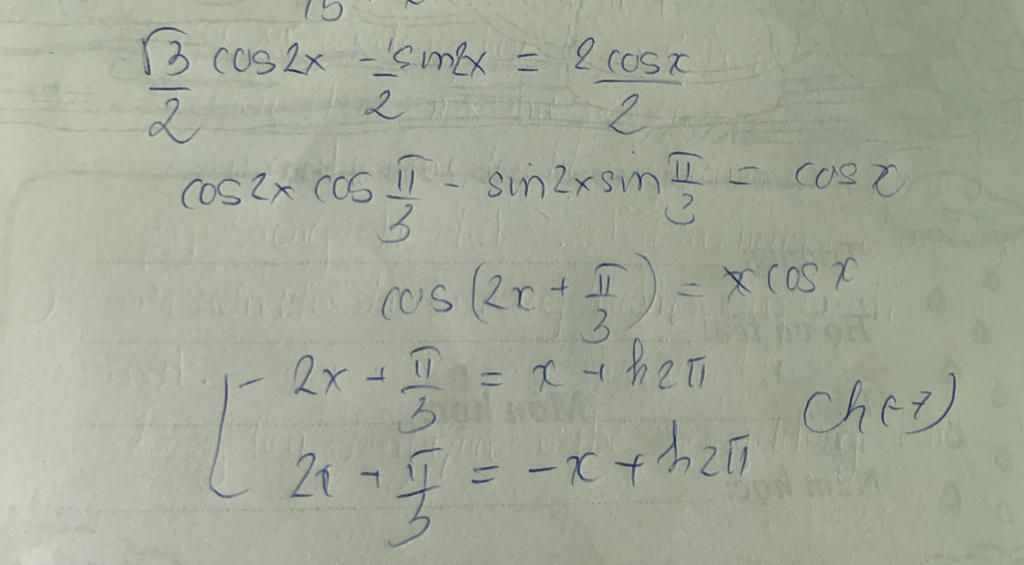 √3/2 cos2x - 1/2 sin2x = 2cosx/2
cos2x cos π/3 - sin2x sin π/3 = cos x
cos (2x + π/3) = cos x
2x + π/3 = x + k2π
(k∈Z)
2x + π/3 = -x + k2π